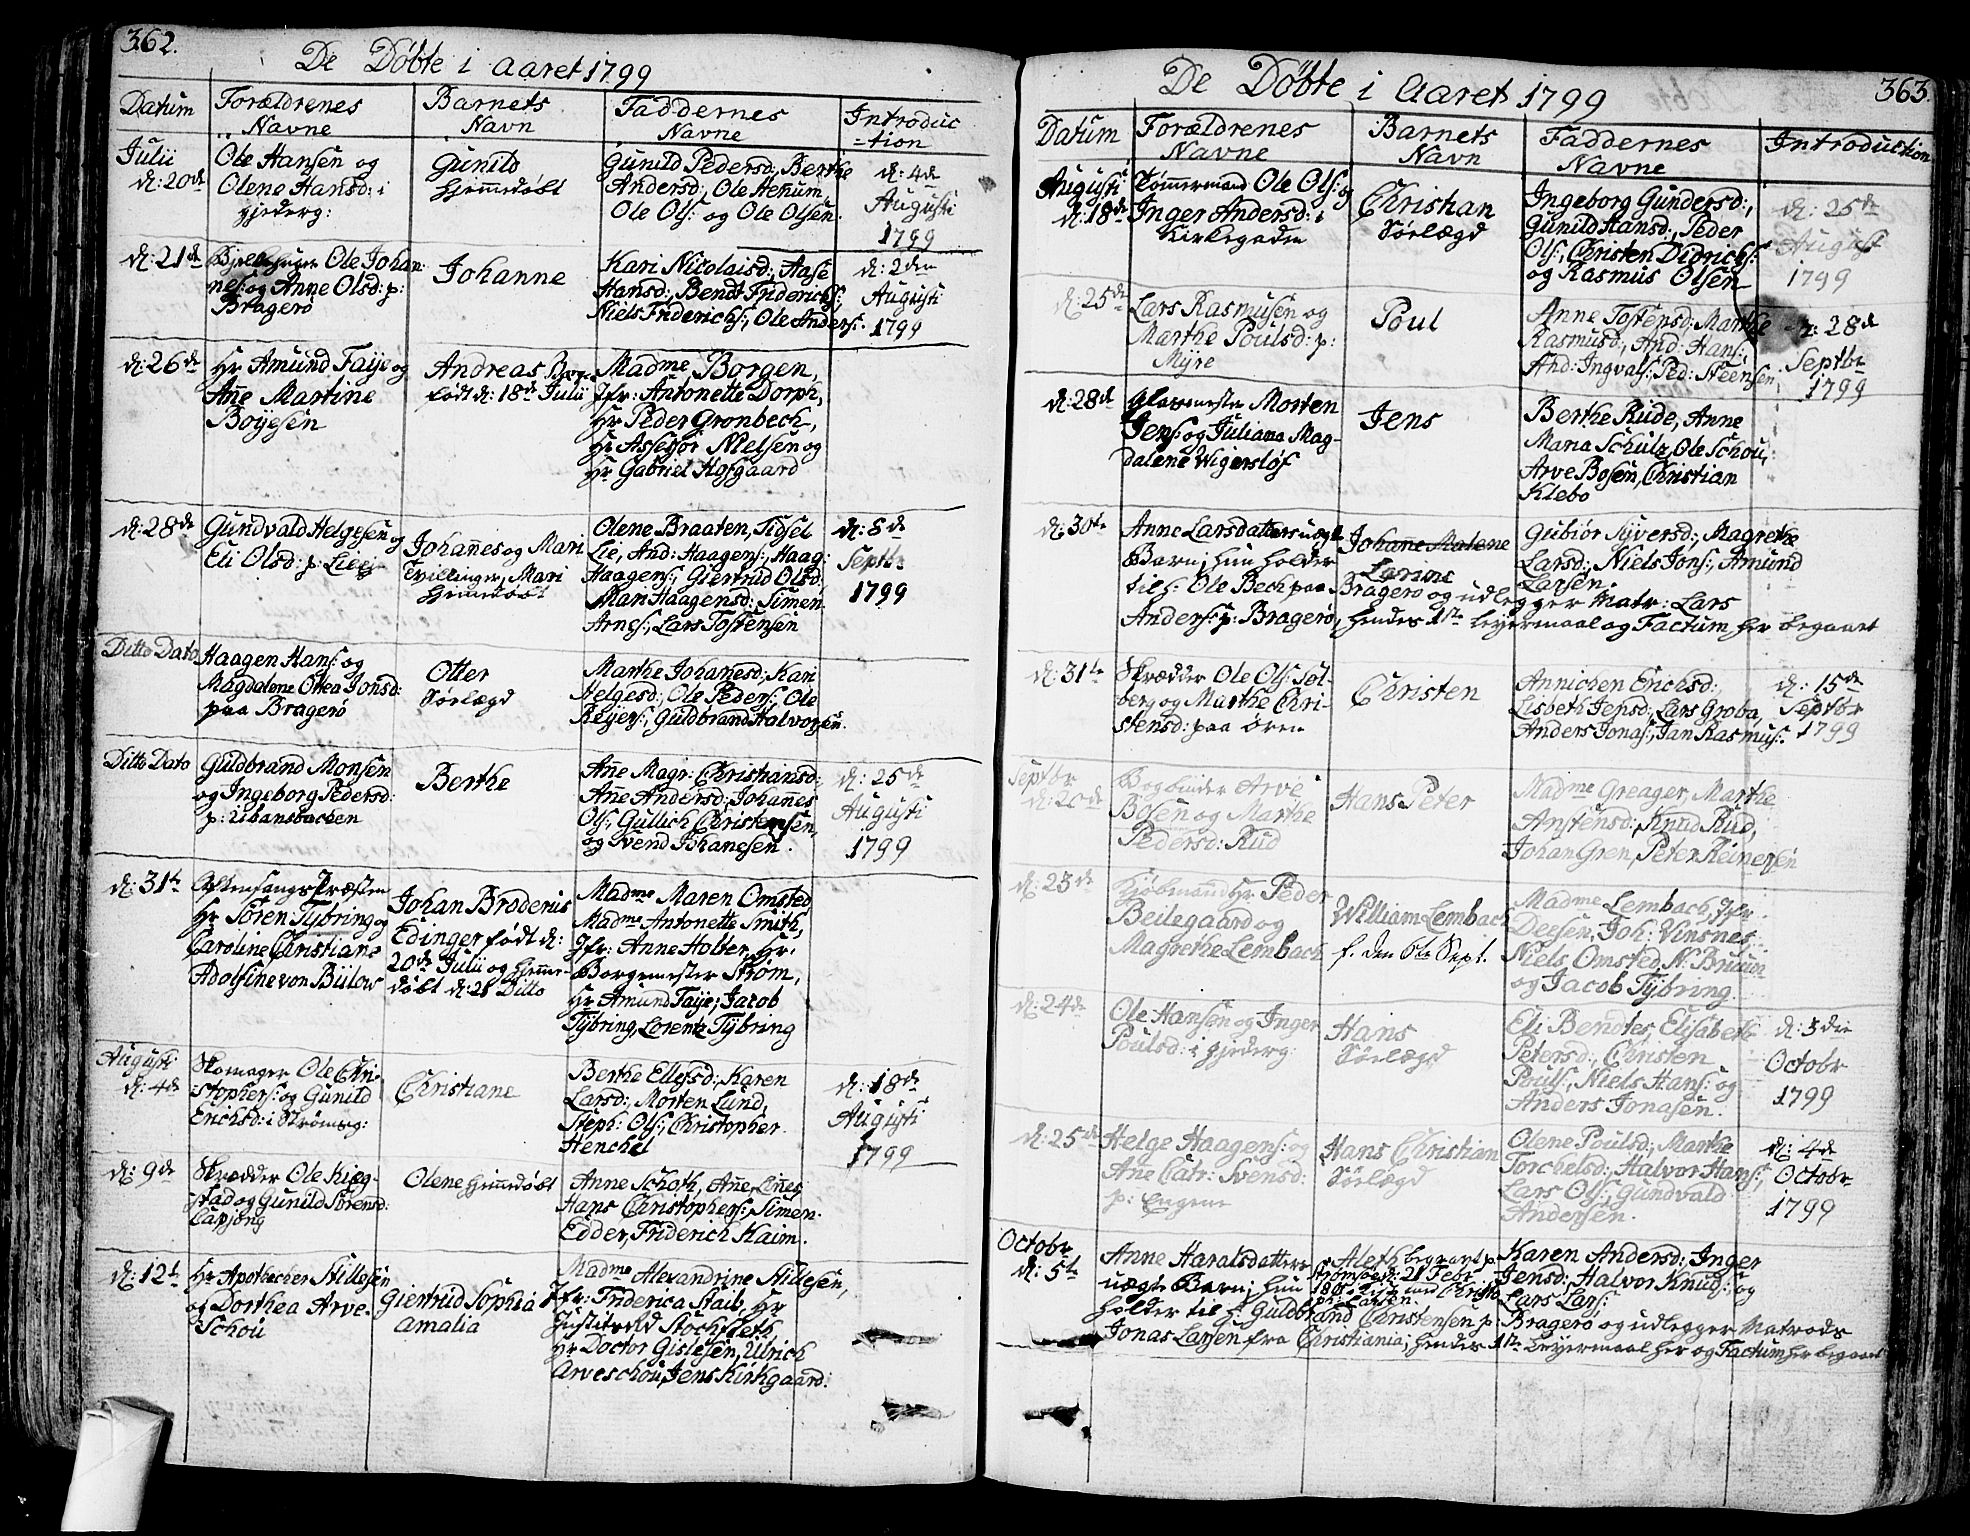 362.
De Døbte i Aaret 1799
Datum
Forældrenes
Navne
Barnets
Navn
Faddernes
Navne
Introduc
=tion
Julii
d: 20de
Ole Hansen og
Olene Hansd: i
Hjederg:
Gunild
Hjemmedøbt
Gunild Pedersd:, Berthe
Andersd:, Ole Aenum
Ole Ols: og Ole Olsen
d: 4de
Augusti
1799
d: 21de
Ole Johan
nes: og Anne Olsd: p:
Bragerö
Johanne
Kari Nicolaisd:, Aase
Hansd:, Bendt Friderichs:,
Niels Friderichs:, Ole Anders:
d: 2den
Augusti
1799
d: 26de
Hr Amund Taije og
Añe Martine
Boyesen
Andreas
født d: 18de Julii
Madme Borgen,
Jfr: Antonette Dorph,
Hr Peder Gronbech,
Hr Assessor Nielsen og
Hr Gabriel Hofgaard
d: 28de
Gundvald Helgesen og
Eli Olsd: p:
Johañes og Mari
Tvillinger, Mari
Hjemmedøbt
Olene Braaten, Sidsel
Lie, And: Haagens:, Haag:
Haagens:, Giertrud Olsd:
Mari Haagensd: Simen
Arnes:, Lars Tostensen
d: 8de
Septbr
1799
Ditto Dato
Haagen Hans: og
Magdalene Ottea Jonsd:
paa Bragerö
Otter
Sørlægd
Marthe Johanesd:, Kari
Helgesd:, Ole Peders:, Ole
Reyers:, Guldbrand Halvorsen
Ditto Dato
Guldbrand Monsen
og Ingeborg Pedersd:
p: Ubansbachen
Berthe
Añe Magr: Christiansd:
Añe Andersd:, Johañes
Ols:, Gullich Christensen,
og Svend Johanesen.
d: 25de
Augusti
1799
d: 31te
AftensangsPræsten
Hr Søren Tybring og
Caroline Christiane
Adolfine von Bülow
Johan Broderus
Edinger født d:
20de Julii og Hjemme-
døbt d: 21 Ditto
Madme Maren Omsted
Madme Antonette Smith,
Jfr: Anne Holter, Hr.
Borgemester Strøm,
Hr Amund Taije, Jacob
Tybring, Lorentz Tybring
Augusti
d: 4de
Skomager Ole Chri-
stophers: og Gunild
Erichsd: i Strömsg:
Christiane
Berthe Ellefsd:, Karen
Larsd:, Morten Lund,
Steph: Ols:, Christopher
Henchel
d: 18de
Augusti
1799
d: 9de
Skrædder Ole Kieg-
stad og Gunild Sörensd:
Olene Hjemmedøbt
Anne Schoth, Añe Lines
Hans Christophers:, Simen
Edder, Friderich Kaim.
d: 12te
Hr Apothecher Stillesen
og Dorthea Arve-
Schou
Giertrud Sophia
Amalia
Madme Alexandrine Stillesen,
Jfr: Friderica Staib, Hr
Justitsraad Stochfleth
Hr Doctor Gislesen, Ulrich
Arveschou, Jens Kirkgaard.
363.
De Döbte i Aaret 1799
Datum
Forældrenes
Navne
Barnets
Navn
Faddernes
Navne
Introduction
Augusti
d: 18de
Tømmermand Ole Ols: og
Inger Andersd: i
Kirkegaden
Christian
Sörlægd
Ingeborg Gundersd:,
Gunild Hansd:, Peder
Ols:, Christen Didrichs:
og Rasmus Olsen
d: 25de
August
1799
d: 25de
Lars Rasmusen og
Marthe Poulsd: p:
Myre
Poul
Anne Tostensd: Marthe
Rasmusd:, And: Hans:,
And: Ingvals: Ped: Neensen
d: 28de
Septbr
1799
d: 28de
Glasmester Morten
Jens: og Juliana Mag-
dalene Wigerslöf
Jens
Berthe Rude, Anne
Maria Schulz, Ole Schou,
Arve Bosen, Christian
Klebo
d: 30te
Anne Larsdatters uægte
Barn; hun holder
til f: Ole Bech paa Bragerö og udlegger Matr: Lars
Anders: p: Bragerö, hendes 1ste Leyermaal og Factum her begaaet
Johañe Malene
Larine
Gubiör Syversd:, Magrethe
Larsd:, Niels Jons:, Amund
Larsen.
d: 31te
Skrædder Ole Ols: Sol-
berg og Marthe Chri-
stensd: paa Ören
Christen
Annichen Erichsd:,
Lisbeth Jensd:, Lars Groba,
Anders Jonas:, Jan Rasmus:
d: 15de
Septbr
1799
Septbr
d: 20de
Bogbinder Arve
Bosen og Marthe
Pedersd: Rud
Hans Peter
Madme Greager, Marthe
Anstensd:, Knud Rud,
Johan Gren, Peter Reinersen
d: 23de
Kjøbmand Hr Peder
Beilegaard og
Magrethe Lembach
William Lembach
f. den 6te Sept.
Madme Lembach, Jfr.
Deesen, Joh: Vinsnes,
Niels Omsted, N. Bruun
og Jacob Tybring
d: 24de
Ole Hansen og Inger
Poulsd: i Hjederg:
Hans
Sörlægd
Eli Bendtes, Elisabeth
Petersd:, Christen
Pouls:, Niels Hans: og
Anders Jonasen.
d: 3die
Octobr
1799
d: 25de
Helge Haagens: og
Ane Catr: Svensd:
p: Engene
Hans Christian
Sörlægd
Olene Poulsd:, Marthe
Torchelsd:, Halvor Hans:,
Lars Ols:, Gundvald
Andersen.
d: 4de
Octobr
1799
Octobr
d: 5te
Anne Haralsdatters
uægte Barn; hun
holder til f: Guldbrand Christensen p: Bragerö og udlegger Matrods
Jonas Larsen fra Christiania; hendes 1ste Leyermaal her og Factum her begaaet
Aleth begravet p.
Strømsoe d: 21 Febr.
Karen Andersd:, Inger
Jensd:, Halvor Knuds: og
Lars Lars: